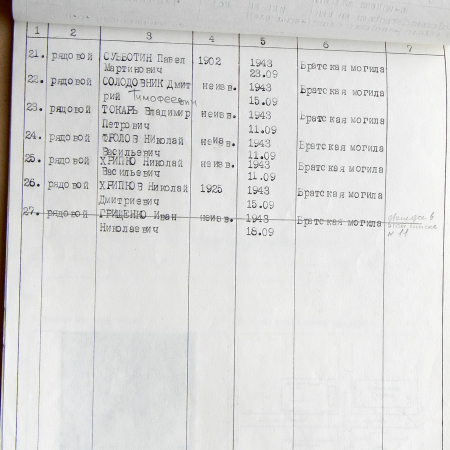 1 2 3 4 5 6 7
21. рядовой СУББОТИН Павел 1902 1943 Братская могила
Мартинович 23.09
22. рядовой СОЛОДОВНИК Дмит неизв. 1943 Братская могила
рий Тимофеевич 15.09
23. рядовой ТОКАРЬ Владимир неизв. 1943 Братская могила
Петрович 11.09
24. рядовой ФРОЛОВ Николай неизв. 1943 Братская могила
Васильевич 11.09
25. рядовой ХРИПКО Николай неизв. 1943 Братская могила
Васильевич 11.09
26. рядовой ХРИПКОВ Николай 1925 1943 Братская могила
Дмитриевич 15.09
27. рядовой ГРИЩЕНКО Иван неизв. 1943 Братская могила
Николаевич 18.09 № 11